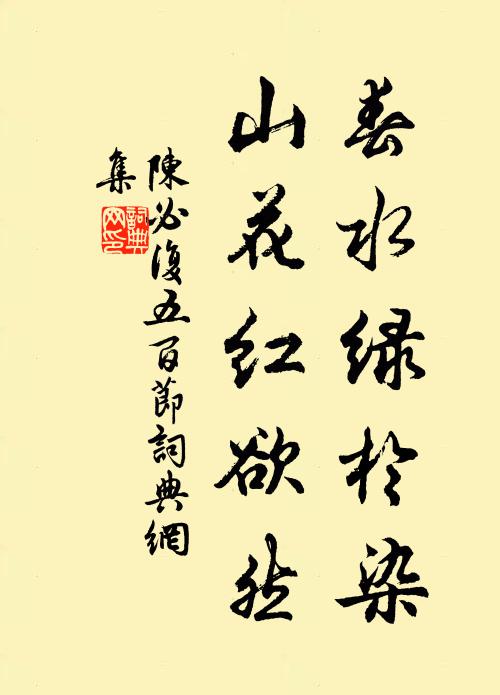 春水绿於染
山花红欲然
陳必復五百節詞典網
集
詞典网印